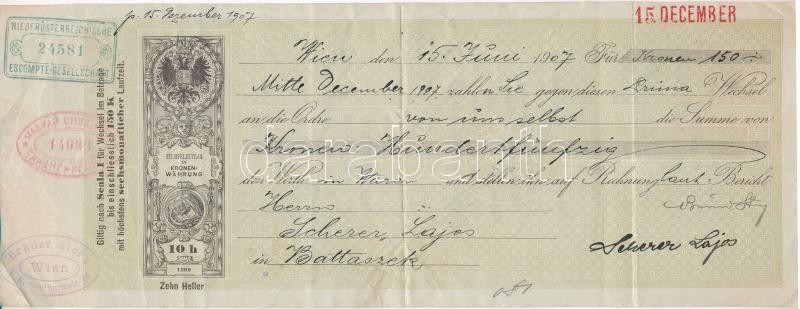 p. 15. Dezember 1907
15. DECEMBER
NIEDERÖSTERREICHISCHE
24581
ESCOMPTE-GESELLSCHAFT
Giltig nach Scala I für Wechsel im Betrage
bis einschliesslich 150 K
mit höchstens sechsmonatlicher Laufzeit.
STEMPELBETRAG
IN
KRONEN-
WÄHRUNG
10 h
1898
Zehn Heller
Wien
Wien den 15. Juni 1907 Für Kronen 150
Mitte December 1907 zahlen Sie gegen diesen Prima Wechsel
an die Ordre von uns selbst die Summe von
Kronen Hundertfünfzig
den Werth in Waren und stellen ihn auf Rechnung laut Bericht
Herrn
Scherer Lajos
in Battaszek
Scherer Lajos